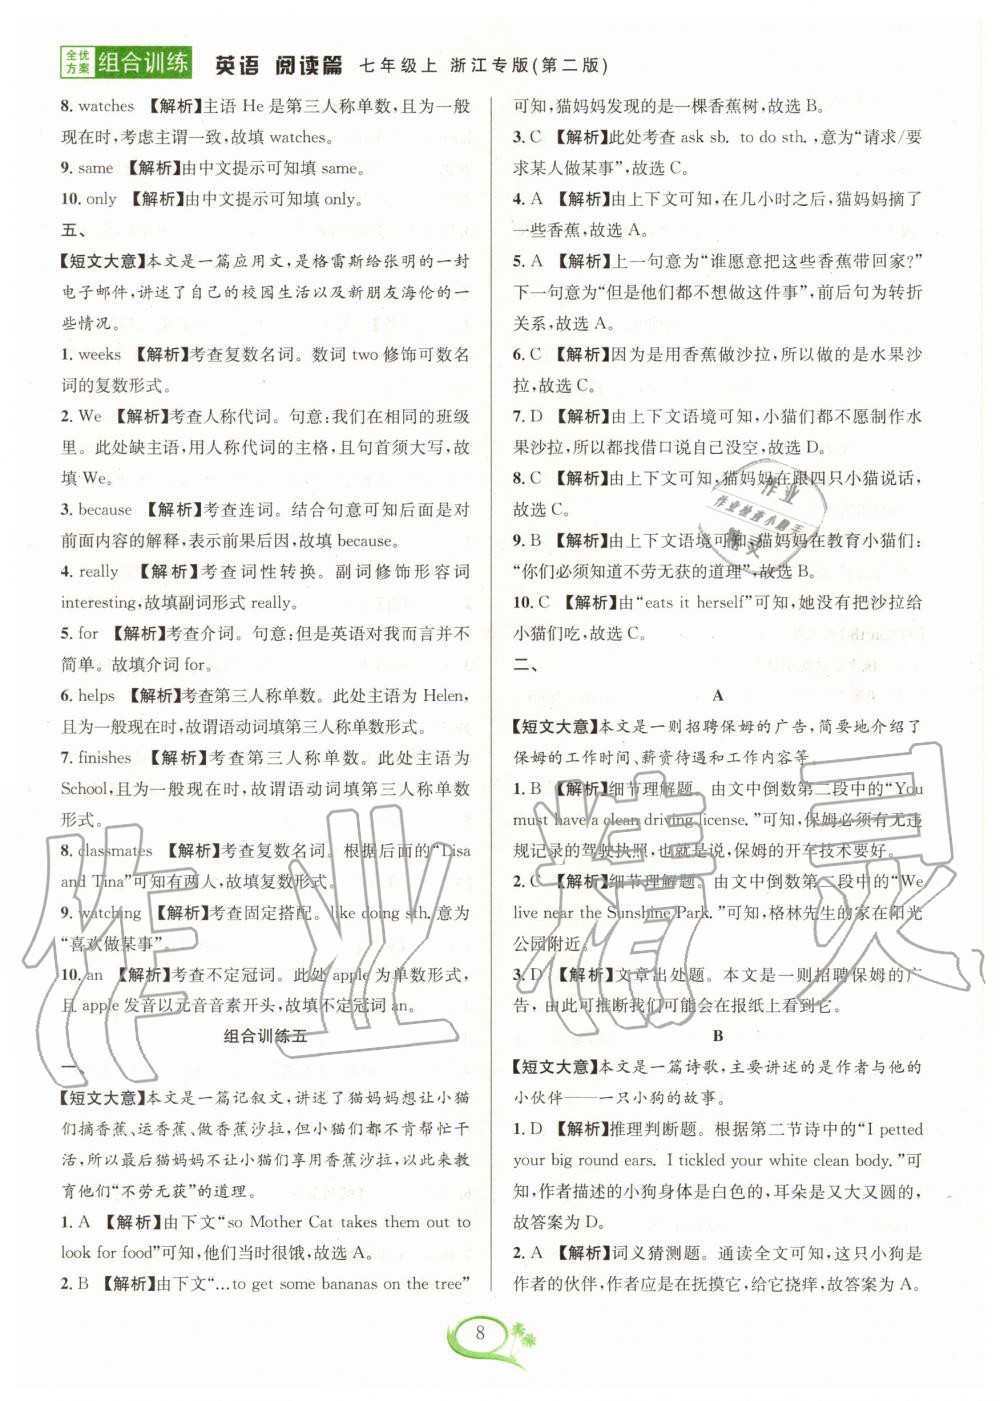 全优方案 组合训练 英语 阅读篇 七年级上 浙江专版(第二版)
8. watches 【解析】主语 He 是第三人称单数,且为一般
现在时,考虑主谓一致,故填 watches。
9. same 【解析】由中文提示可知填 same。
10. only 【解析】由中文提示可知填 only。
五、
【短文大意】本文是一篇应用文,是格雷斯给张明的一封
电子邮件,讲述了自己的校园生活以及新朋友海伦的一
些情况。
1. weeks 【解析】考查复数名词。数词 two 修饰可数名
词的复数形式。
2. We 【解析】考查人称代词。句意:我们在相同的班级
里。此处缺主语,用人称代词的主格,且句首须大写,故
填 We。
3. because 【解析】考查连词。结合句意可知后面是对
前面内容的解释,表示前果后因,故填 because。
4. really 【解析】考查词性转换。副词修饰形容词
interesting,故填副词形式 really。
5. for 【解析】考查介词。句意:但是英语对我而言并不
简单。故填介词 for。
6. helps 【解析】考查第三人称单数。此处主语为 Helen,
且为一般现在时,故谓语动词填第三人称单数形式。
7. finishes 【解析】考查第三人称单数。此处主语为
School,且为一般现在时,故谓语动词填第三人称单数
形式。
8. classmates 【解析】考查复数名词。根据后面的“Lisa
and Tina”可知有两人,故填复数形式。
9. watching 【解析】考查固定搭配。like doing sth. 意为
“喜欢做某事”。
10. an 【解析】考查不定冠词。此处 apple 为单数形式,
且 apple 发音以元音音素开头,故填不定冠词 an。
组合训练五
一、
【短文大意】本文是一篇记叙文,讲述了猫妈妈想让小猫
们摘香蕉、运香蕉、做香蕉沙拉,但小猫们都不肯帮忙干
活,所以最后猫妈妈不让小猫们享用香蕉沙拉,以此来教
育他们“不劳无获”的道理。
1. A 【解析】由下文“so Mother Cat takes them out to
look for food”可知,他们当时很饿,故选 A。
2. B 【解析】由下文“…to get some bananas on the tree”
可知,猫妈妈发现的是一棵香蕉树,故选 B。
3. C 【解析】此处考查 ask sb. to do sth.,意为“请求/要
求某人做某事”,故选 C。
4. A 【解析】由上下文可知,在几小时之后,猫妈妈摘了
一些香蕉,故选 A。
5. A 【解析】上一句意为“谁愿意把这些香蕉带回家?”
下一句意为“但是他们都不想做这件事”,前后句为转折
关系,故选 A。
6. C 【解析】因为是用香蕉做沙拉,所以做的是水果沙
拉,故选 C。
7. D 【解析】由上下文语境可知,小猫们都不愿制作水
果沙拉,所以都找借口说自己没空,故选 D。
8. C 【解析】由上下文可知,猫妈妈在跟四只小猫说话,
故选 C。
9. B 【解析】由上下文语境可知,猫妈妈在教育小猫们:
“你们必须知道不劳无获的道理”,故选 B。
10. C 【解析】由“eats it herself”可知,她没有把沙拉给
小猫们吃,故选 C。
二、
A
【短文大意】本文是一则招聘保姆的广告,简要地介绍了
保姆的工作时间、薪资待遇和工作内容等。
1. B 【解析】细节理解题。由文中倒数第二段中的“You
must have a clean driving license.”可知,保姆必须有无违
规记录的驾驶执照,也就是说,保姆的开车技术要好。
2. C 【解析】细节理解题。由文中倒数第二段中的“We
live near the Sunshine Park.”可知,格林先生的家在阳光
公园附近。
3. D 【解析】文章出处题。本文是一则招聘保姆的广
告,由此可推断我们可能会在报纸上看到它。
B
【短文大意】本文是一篇诗歌,主要讲述的是作者与他的
小伙伴——一只小狗的故事。
1. D 【解析】推理判断题。根据第二节诗中的“I petted
your big round ears. I tickled your white clean body.”可
知,作者描述的小狗身体是白色的,耳朵是又大又圆的,
故答案为 D。
2. A 【解析】词义猜测题。通读全文可知,这只小狗是
作者的伙伴,作者应是在抚摸它,给它挠痒,故答案为 A。
8
作业精灵
作业
作业检查小助手
精灵